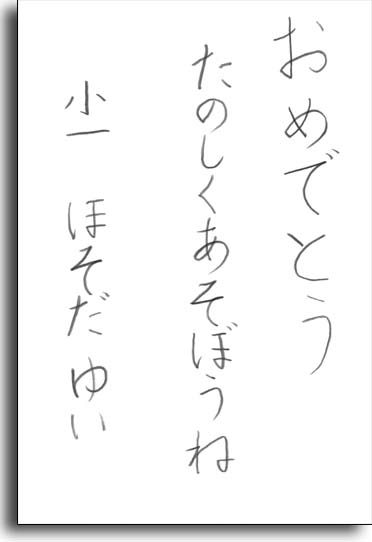 おめでとう
たのしくあそぼうね
小一 ほそだ ゆい